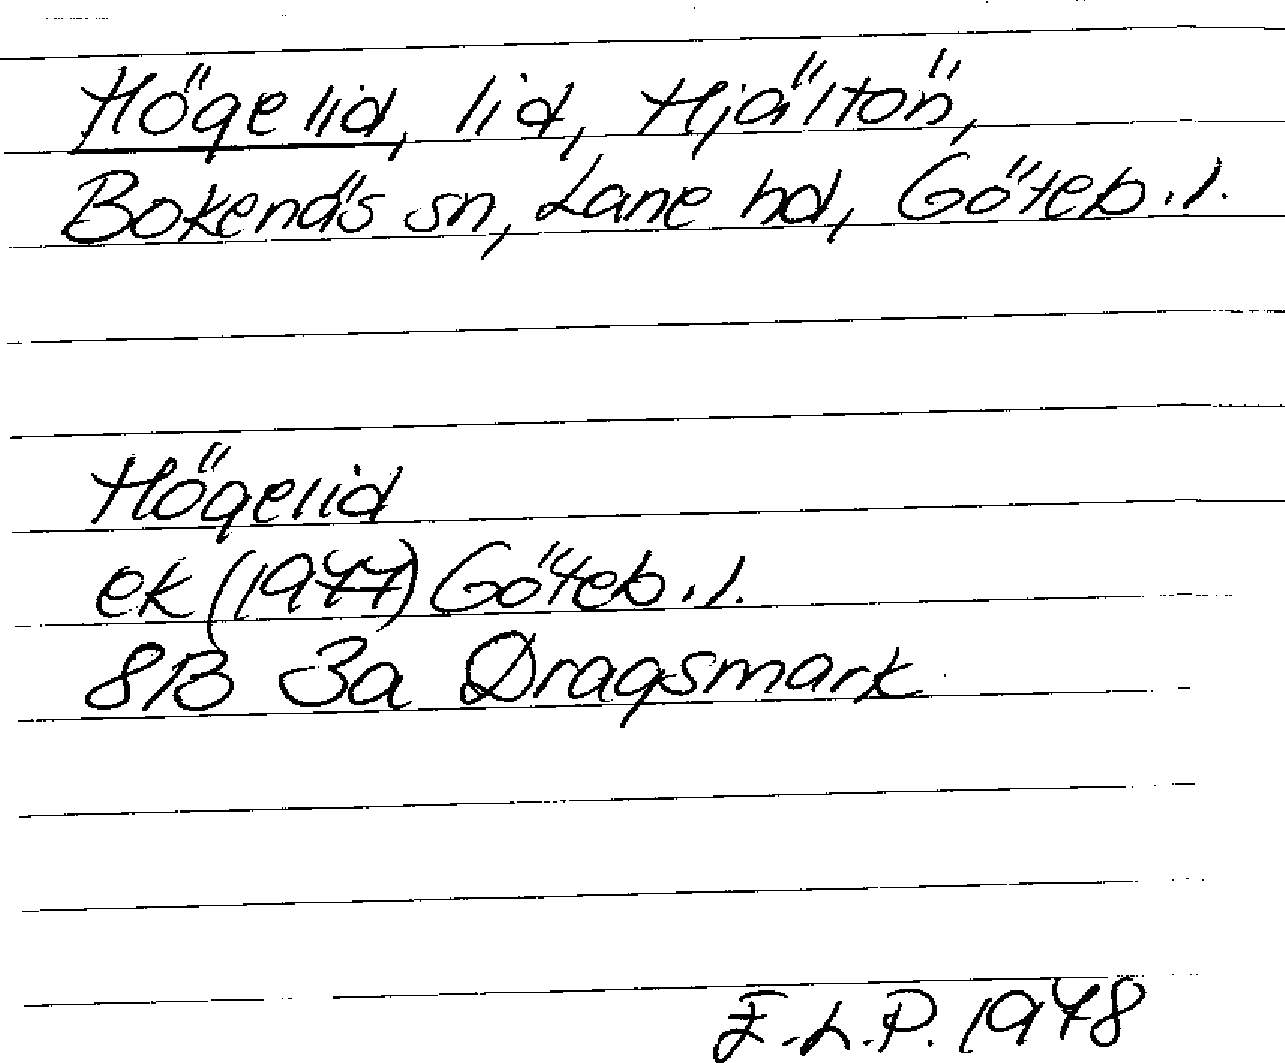 Högelid, lid, Hjältön,
Bokenäs sn, Lane hd, Göteb.l.
Högelid
ek (1977) Göteb.l.
8B 3a Dragsmark
E.L.P. 1978